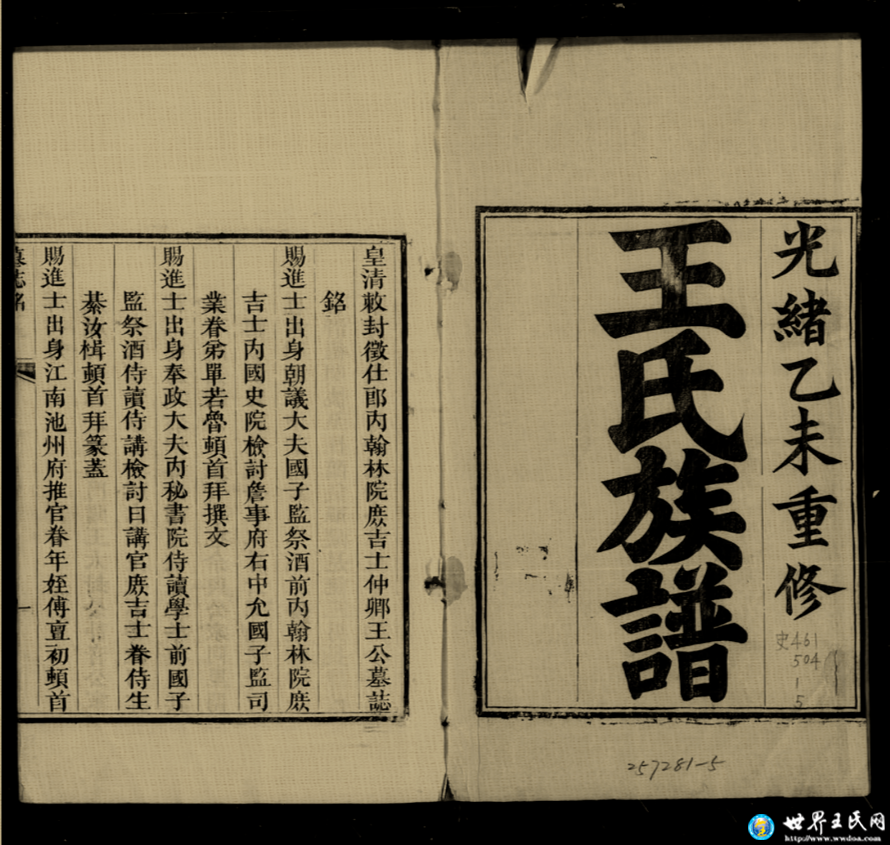 光緒乙未重修
王氏族譜
史461
504
1
5
257281-5
皇清敕封徵仕郎内翰林院庶吉士仲卿王公墓誌
銘
賜進士出身朝議大夫國子監祭酒前内翰林院庶
吉士内國史院檢討詹事府右中允國子監司
業眷弟單若魯頓首拜撰文
賜進士出身奉政大夫内秘書院侍讀學士前國子
監祭酒侍讀侍講檢討日講官庶吉士眷侍生
綦汝楫頓首拜篆蓋
賜進士出身江南池州府推官眷年姪傅亶初頓首
墓誌銘
一
世界王氏网
http://www.wwdoa.com